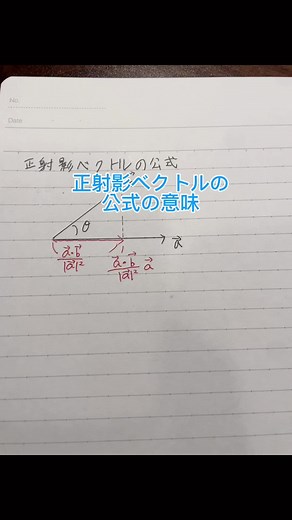 No.
Date
正射影ベクトルの公式
正射影ベクトルの
公式の意味
θ
a⃗
a⃗・b⃗/|a⃗|²
a⃗・b⃗/|a⃗|² a⃗